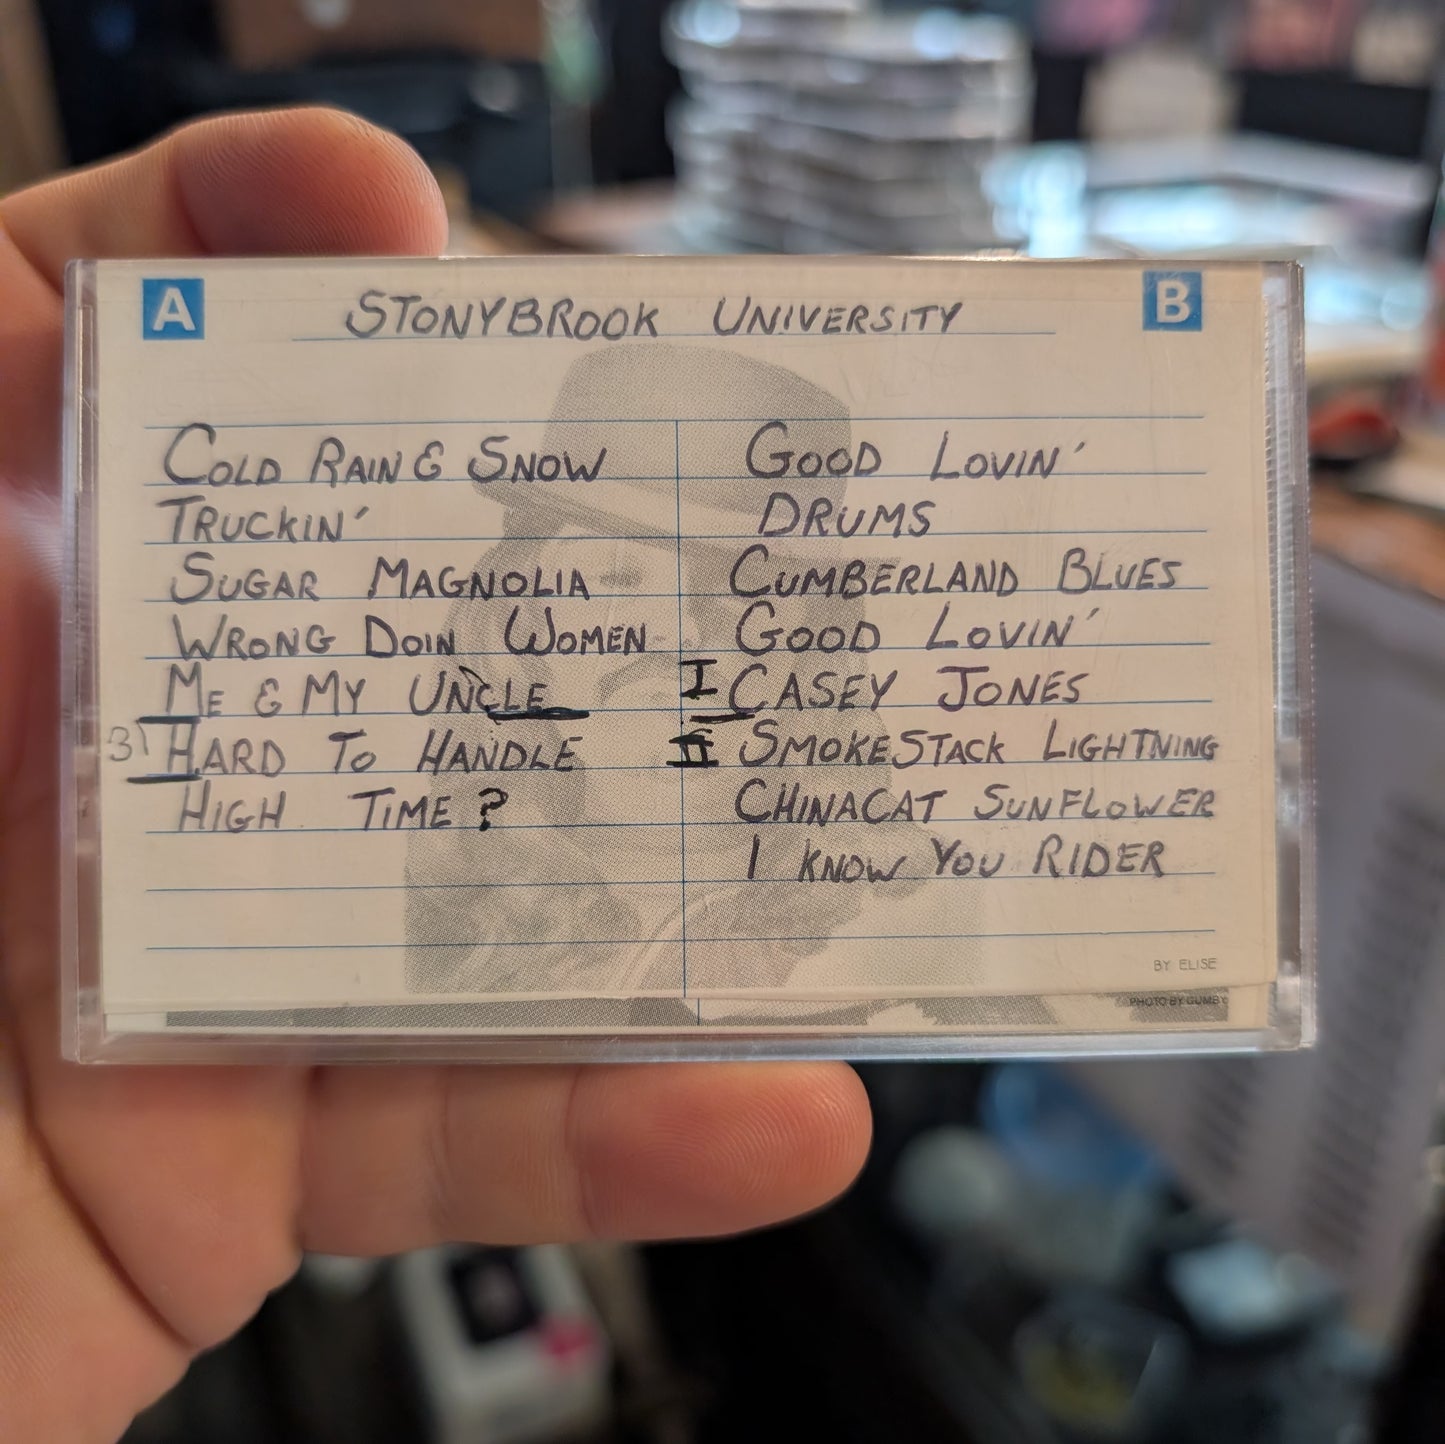 A
STONYBROOK UNIVERSITY
B
COLD RAIN & SNOW
TRUCKIN'
SUGAR MAGNOLIA
WRONG DOIN WOMEN
ME & MY UNCLE
31 HARD TO HANDLE
HIGH TIME?
GOOD LOVIN'
DRUMS
CUMBERLAND BLUES
GOOD LOVIN'
I CASEY JONES
II SMOKESTACK LIGHTNING
CHINACAT SUNFLOWER
I KNOW YOU RIDER
BY ELISE
PHOTO BY GUMBY